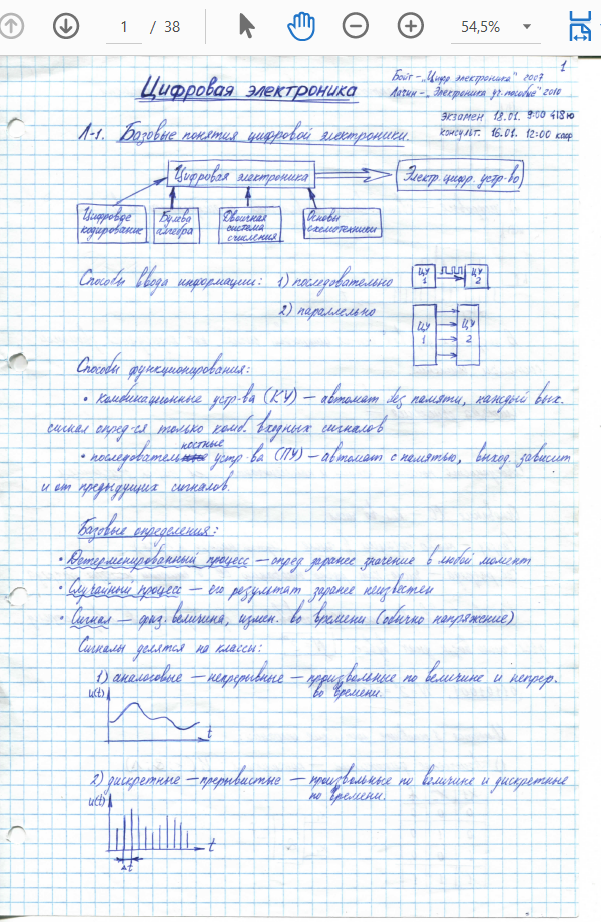 1 / 38
54,5%
1
Цифровая электроника
Бойт - „Цифр. электроника" 2007
Лачин - „Электроника уч. пособие" 2010
экзамен 18.01. 9:00 418ю
консульт. 16.01. 12:00 каф
Л-1. Базовые понятия цифровой электроники.
Цифровая электроника
Электр. цифр. устр-во
Цифровое
кодирование
Булева
алгебра
Двоичная
система
счисления
Основы
схемотехники
Способы ввода информации: 1) последовательно
ЦУ
1
ЦУ
2
2) параллельно
ЦУ
1
ЦУ
2
Способы функционирования:
• комбинационные устр-ва (КУ) — автомат без памяти, каждый вых.
сигнал опред-ся только комб. входных сигналов
• последовательностные устр-ва (ПУ) — автомат с памятью, выход. зависит
и от предыдущих сигналов.
Базовые определения:
• Детерменированный процесс — опред. заранее значение в любой момент
• Случайный процесс — его результат заранее неизвестен
• Сигнал — физ. величина, измен. во времени (обычно напряжение)
Сигналы делятся на классы:
1) аналоговые — непрерывные — произвольные по величине и непрер.
во времени.
u(t)
t
2) дискретные — прерывистые — произвольные по величине и дискретные
по времени.
u(t)
t
Δt